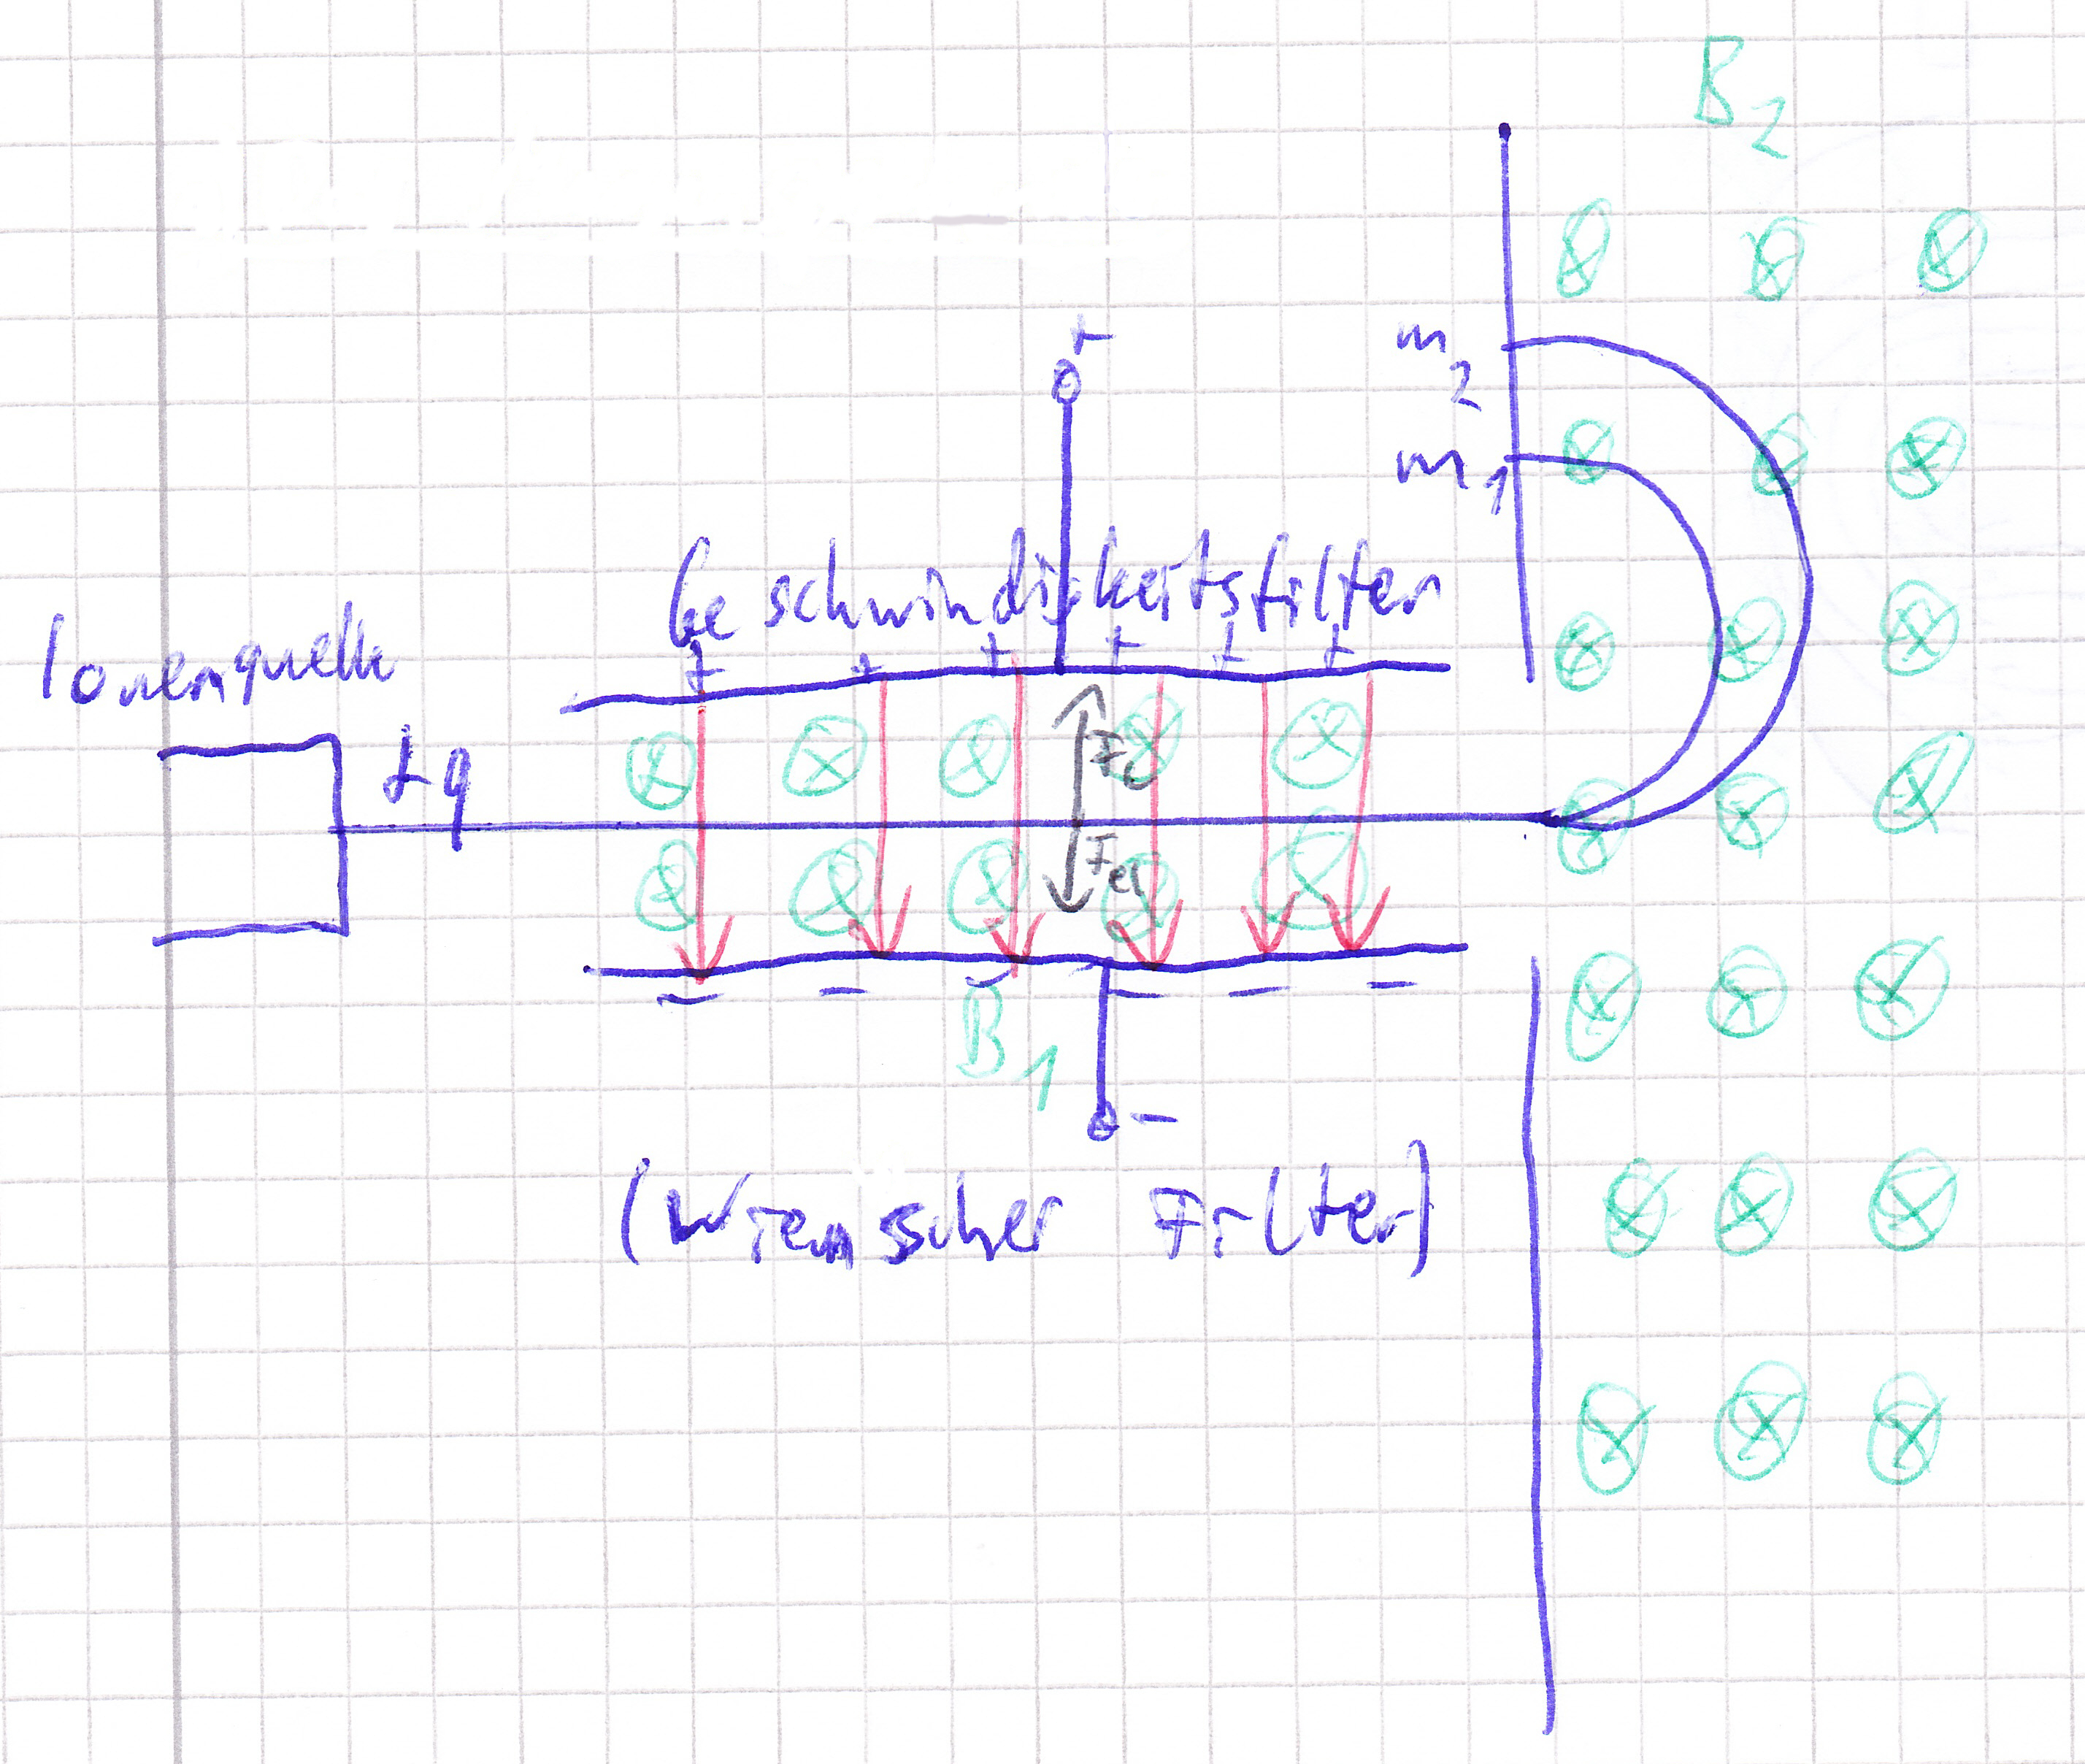 B2
+
m2
m1
Geschwindigkeitsfilter
Ionenquelle
+ + + + + +
+q
FL
Fel
− − − − − −
B1
−
(Wienscher Filter)